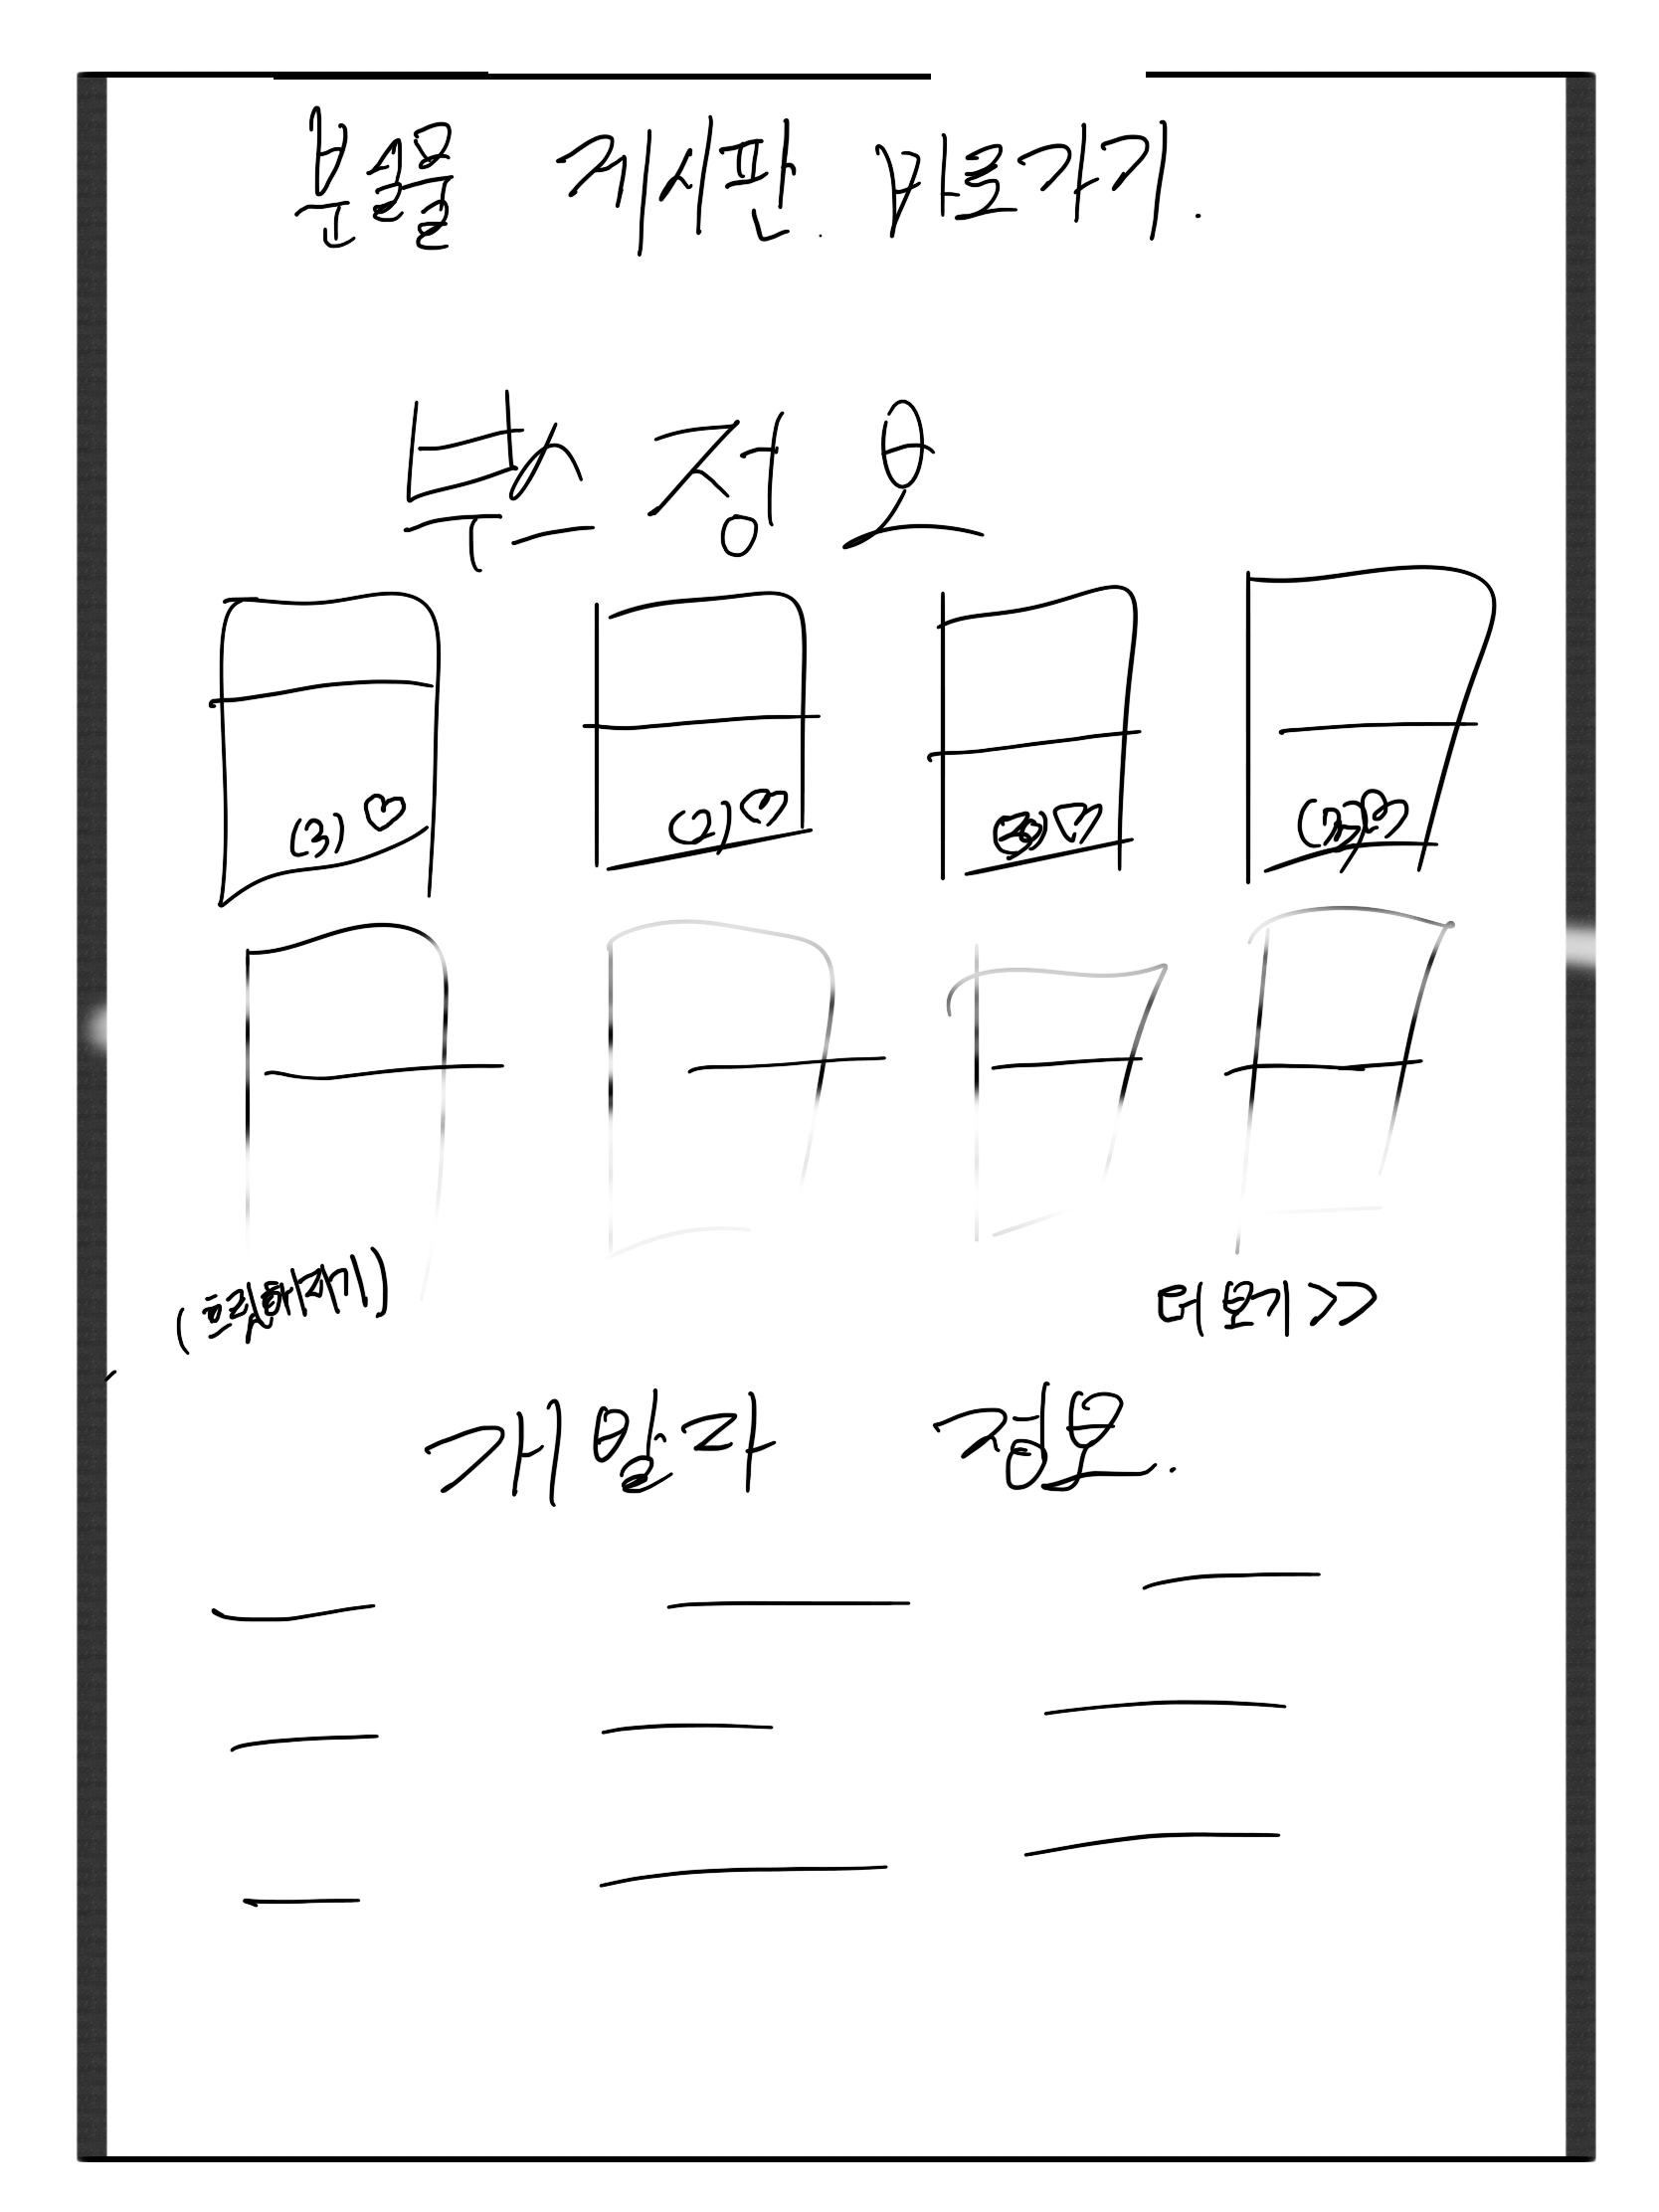 분실물 게시판 바로가기.
부스 정보
(3) ♡ (2) ♡ ♡ ♡
더보기 >>
개발자 정보.